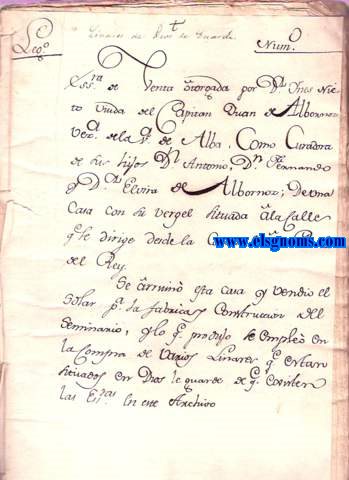 Linares de Dios te Guarde
Lego Numo
Essra de Venta otorgada por Da Ines Nie-
to Viuda del Capitan Juan de Albornoz
Veza de la Va de Alba, Como Curadora
de sus hijos Dn Antonio, Dn Fernando
y Da Elvira de Albornoz; de una
Casa con su vergel situada a la Calle
qe se dirige desde la
www.elsgnoms.com
del Rey.
Se arruinó esta casa y vendio el
Solar pa la fabrica y Construccion del
Seminario, y lo qe produjo se empleò en
la Compra de varios Linares qe estan
situados en Dios le guarde de qe existen
las Esras en este Archivo